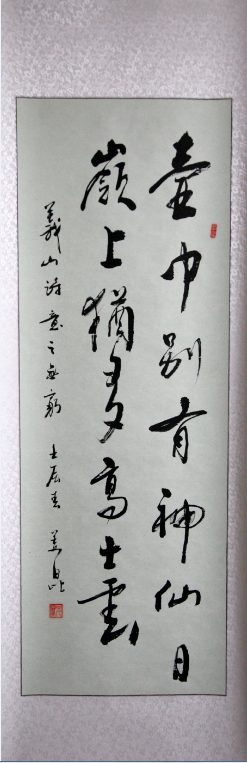 壺中别有神仙日
嶺上猶多高士雲
義山詩意之 壬辰春